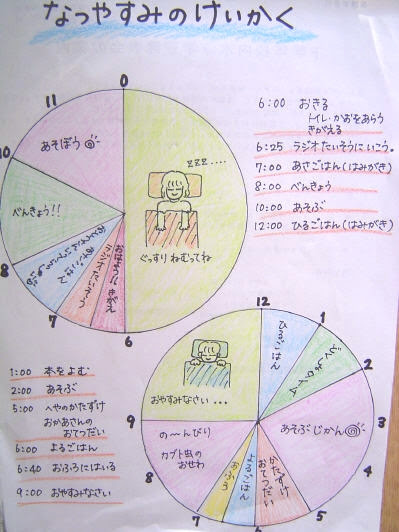 なつやすみのけいかく
0
11
10
8
7
6
あそぼう
べんきょう!!
zzz....
ぐっすりねむってね
6:00 おきる
トイレ・かおをあらう
きがえる
6:25 ラジオたいそうにいこう。
7:00 あさごはん(はみがき)
8:00 べんきょう
10:00 あそぶ
12:00 ひるごはん(はみがき)
1:00 本をよむ
2:00 あそぶ
5:00 へやのかたずけ
おかあさんの
おてつだい
6:00 よるごはん
6:40 おふろにはいる
9:00 おやすみなさい
12
1
2
3
4
5
7
8
9
ひるごはん
どくしょタイム
あそぶじかん
かたずけ
おてつだい
よるごはん
おふろ
の〜んびり
カブト虫の
おせわ
おやすみなさい...